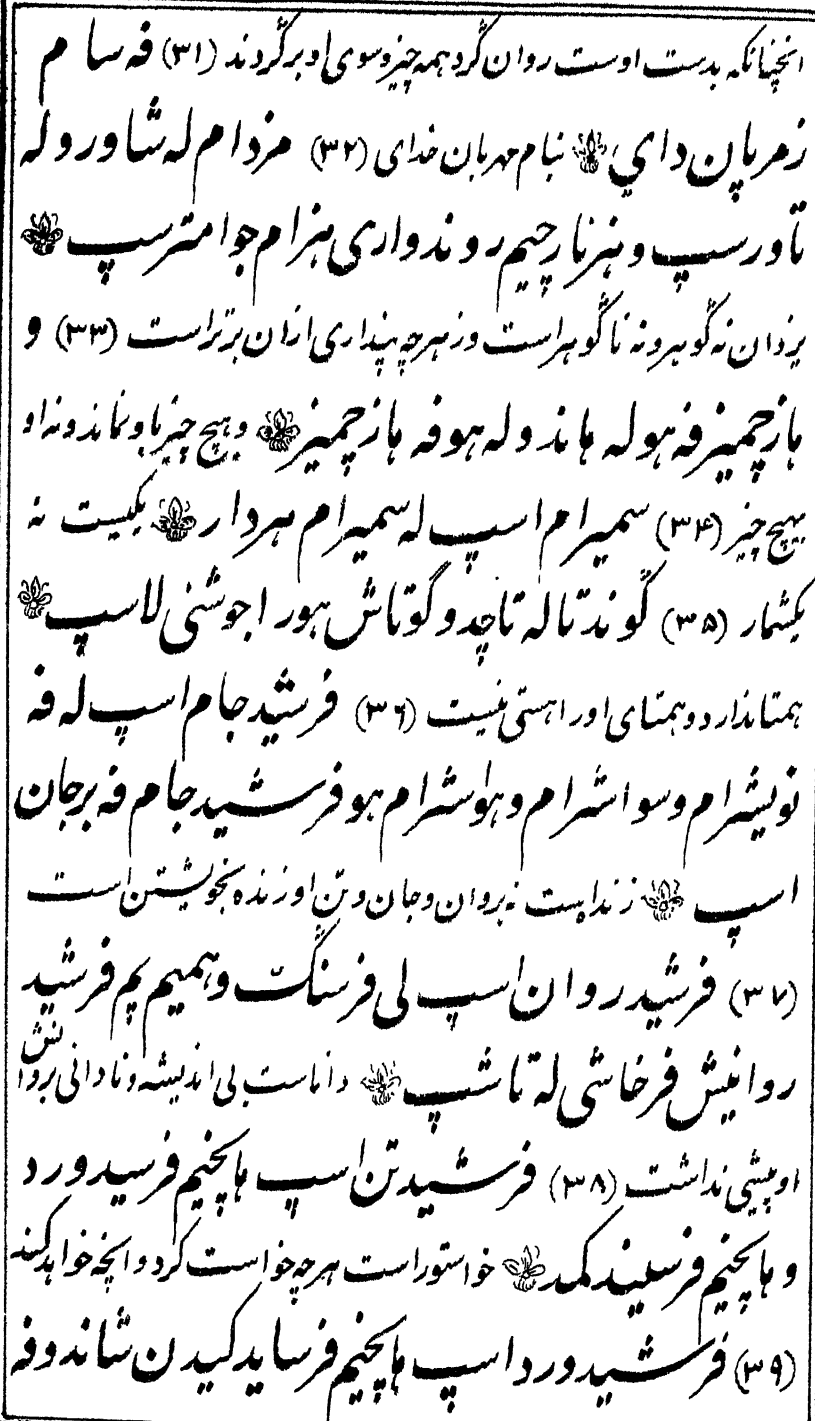 انچنانکه بدست اوست روان گرد همه چیز و سوی او برگردند (۳۱) فه سام
زمرپان دای نبام مهربان خدای (۳۲) مزدام له شاور و له
تاورسپ و هنرنا رچیم روندواری هنرام جوامترسپ
یزدان نه گوهر و نه ناگوهر است وز هرچه پنداری ازان برتر است (۳۳) و
هازچمیز فه هو له هاند و له هو فه هازچمیز و هیچ چیز باو نماند و نه او
بهیچ چیز (۳۴) سمیرام اسپ له سمیرام هردار یکیست نه
یکشمار (۳۵) گوندتا له تاچد و گوتاش هور اجوشنی لاسپ
همتا ندارد و همتای او را هستی نیست (۳۶) فرشید جام اسپ له فه
نویشرام و سواشرام و هواشرام هو فرشید جام فه برجان
اسپ زنداست نه بروان و جان و تن او زنده بخویشتن است
(۳۷) فرشید روان اسپ لی فرسنگ و همیم پم فرشید
روانیش فرخاشی له تاشپ داناست بی اندیشه و نادانی بروانش
او پیشی نداشت (۳۸) فرشیدتن اسپ هاپخیم فرسید ورد
و هاپخیم فرسیند کمد خواستور است هرچه خواست کرد و انچه خواهد کند
(۳۹) فرشید ورد اسپ هاپخیم فرساید کیدن شاند و فه